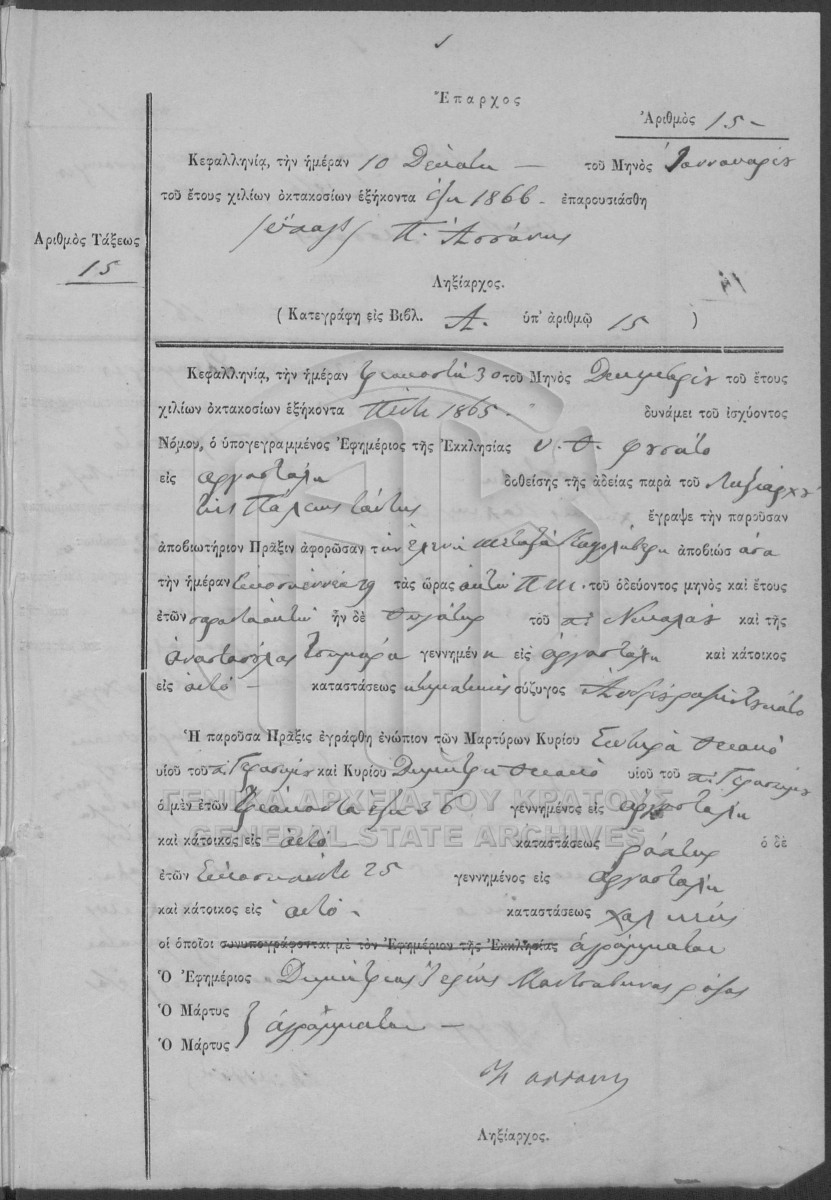 Ἔπαρχος
Ἀριθμὸς 15 –
Κεφαλληνίᾳ, τὴν ἡμέραν 10 Δεκάτη – τοῦ Μηνὸς Ἰαννουαρίου
τοῦ ἔτους χιλίων ὀκτακοσίων ἑξήκοντα ἕξη 1866 – ἐπαρουσιάσθη
Ἀριθμὸς Τάξεως
15
Ληξίαρχος.
( Κατεγράφη εἰς Βιβλ. Α. ὑπ' ἀριθμῷ 15 )
Κεφαλληνίᾳ, τὴν ἡμέραν τριακοστὴ 30 τοῦ Μηνὸς Δεκεμβρίου τοῦ ἔτους
χιλίων ὀκτακοσίων ἑξήκοντα πέντε 1865 – δυνάμει τοῦ ἰσχύοντος
Νόμου, ὁ ὑπογεγραμμένος Ἐφημέριος τῆς Ἐκκλησίας
εἰς Ἀργοστόλη δοθείσης τῆς ἀδείας παρὰ τοῦ Ληξιάρχου
τῆς Πόλεως ταύτης ἔγραψε τὴν παροῦσαν
ἀποβιωτήριον Πρᾶξιν ἀφορῶσαν τὴν Ἑλένη Μεταξᾶ ἀποβιώσασα
τὴν ἡμέραν εἰκοσιεννέα 29 τὰς ὥρας ὀκτὼ π.μ. τοῦ ὁδεύοντος μηνὸς καὶ ἔτους
ἐτῶν σαραντaοκτὼ ἦν δὲ θυγάτηρ τοῦ π. Νικολάου καὶ τῆς
Ἀναστασούλας γεννημένη εἰς Ἀργοστόλη καὶ κάτοικος
εἰς αὐτό – καταστάσεως κτηματικῆς σύζυγος
Ἡ παροῦσα Πρᾶξις ἐγράφθη ἐνώπιον τῶν Μαρτύρων Κυρίου Σωτηρᾶ
υἱοῦ τοῦ π. Γερασίμου καὶ Κυρίου Δημήτρη υἱοῦ τοῦ π. Γερασίμου
ὁ μὲν ἐτῶν τριάκοντα ἕξη 36 γεννημένος εἰς Ἀργοστόλη
καὶ κάτοικος εἰς αὐτό – καταστάσεως ράπτης ὁ δὲ
ἐτῶν εἰκοσιπέντε 25 γεννημένος εἰς Ἀργοστόλη
καὶ κάτοικος εἰς αὐτό – καταστάσεως χαλκιάς
οἱ ὁποῖοι συνυπογράφονται μὲ τὸν Ἐφημέριον τῆς Ἐκκλησίας ἀγράμματοι
Ὁ Ἐφημέριος Δημήτριος Ἱερεύς
Ὁ Μάρτυς
ἀγράμματοι –
Ὁ Μάρτυς
Ληξίαρχος.
ΓΕΝΙΚΑ ΑΡΧΕΙΑ ΤΟΥ ΚΡΑΤΟΥΣ
GENERAL STATE ARCHIVES